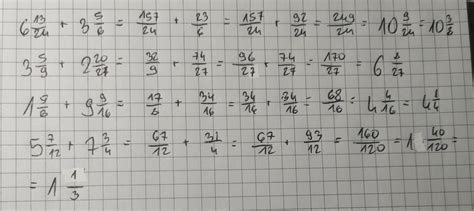 6 13/24 + 3 5/6 = 157/24 + 23/6 = 157/24 + 92/24 = 249/24 = 10 9/24 = 10 3/8
3 5/9 + 2 20/27 = 32/9 + 74/27 = 96/27 + 74/27 = 170/27 = 6 8/27
1 9/8 + 9 9/16 = 17/8 + 34/16 = 34/16 + 34/16 = 68/16 = 4 4/16 = 4 1/4
5 7/12 + 7 3/4 = 67/12 + 31/4 = 67/12 + 93/12 = 160/120 = 1 40/120 =
= 1 1/3